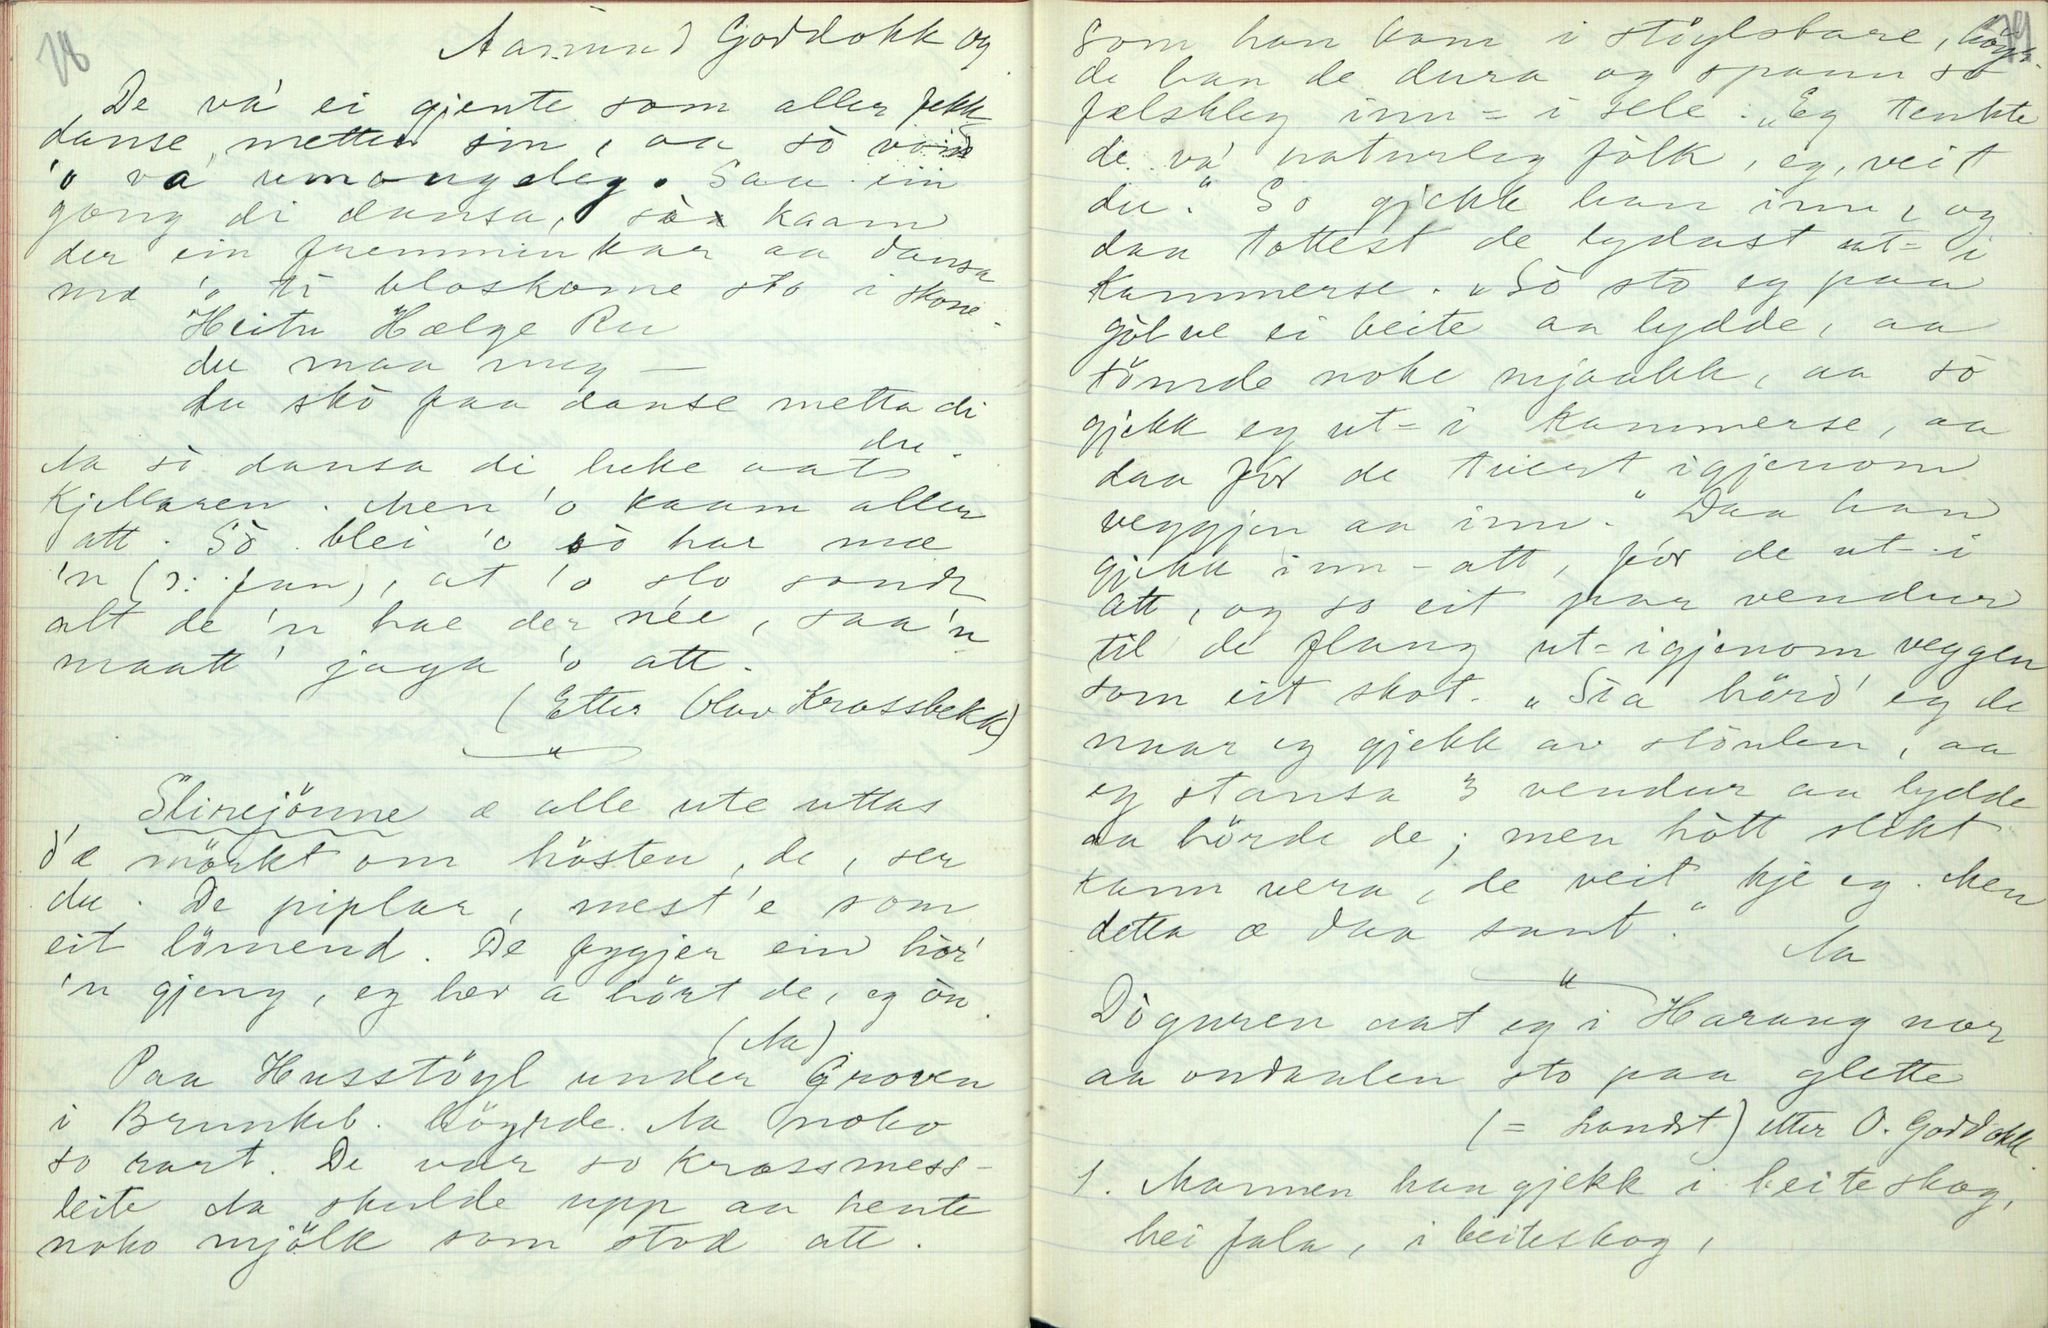 18
Aasmund Goddokk og
De va' ei gjente som aller fekk
danse metten sin, aa sò
'o va umongeleg. Saa ein
gong di dansa, saa kaam
der ein fremminkar aa dansa
mæ 'o ti bloskorne sto i skone.
"Heitu Hælge Ru
du maa meg —
du skò faa danse metta di
du.
Aa sò dansa di beke aat
Kjellaren. Men 'o kaam aller
att. Sò blei 'o sò har mæ
'n (ɔ: fan), at 'o slo sondt
alt de 'n hae der née, saa 'n
maatt' jaga 'o att.
(Etter Olav Krossbekk)
"
Slirejònne æ alle ute uttas
d'æ mörkt om hösten, de, ser
du. De piplar, mest'e som
eit lömend. De fygjer ein hör'
'n gjeng, eg hev a hört de, eg òn.
(Aa)
Paa Husstöyl under Groven
i Brunkeb. höyrde Aa noko
so rart. De var so krossmess-
leite Aa skulde upp aa hente
noko mjölk som stod att.
19
Som han kom i stöylsbare, höyr-
de han de dura og spann so
fælsleg inn-i sele. "Eg tenkte
de va' naturleg fòlk, eg, veit
du." So gjekk han inn, og
daa tottest de lydast ut-i
kammerse. "Sò sto eg paa
gòlve ei beite aa lydde, aa
tömde noke mjaakk, aa sò
gjekk eg ut-i kammerse, aa
daa fòr de tvert igjenom
veggjen aa inn." Daa han
gjekk inn-att, fór de ut-i
att, og so eit par vendur
til de flaug ut-igjenom veggen
som eit skot. "Sia hörd' eg de
naar eg gjekk av stöulen, aa
eg stansa 3 vendur aa lydde
aa hörde de; men hòtt slikt
kann vera, de veit kje eg. Men
detta æ daa sant."
Aa
"
Dòguren aat eg i Haraug nor
aa ondaalen sto paa glette
(= handst) etter O. Goddokk
1. Mannen han gjekk i beiteskog,
hei fala, i beiteskog,